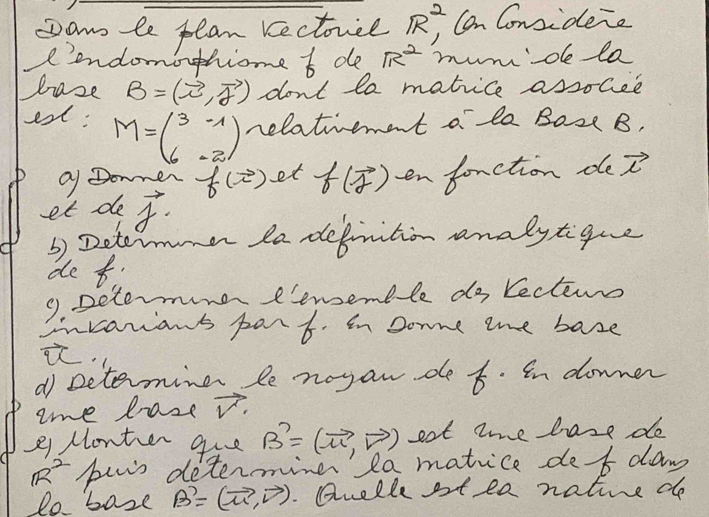 Dans le plan vectoriel ℝ², On Considère
l'endomorphisme f de ℝ² muni de la
base B = (i⃗, j⃗) dont la matrice associée
est : M = (3 -1
6 -2) relativement à la Base B.
a) Donner f(i⃗) et f(j⃗) en fonction de i⃗
et de j⃗.
b) Déterminer la définition analytique
de f.
c) Déterminer l'ensemble des Vecteurs
invariants par f. En Donne une base
u⃗.
d) Déterminer le noyau de f. En donner
une base v⃗.
e) Montrer que B' = (u⃗, v⃗) est une base de
ℝ² puis déterminer la matrice de f dans
la base B' = (u⃗, v⃗). Quelle est la nature de